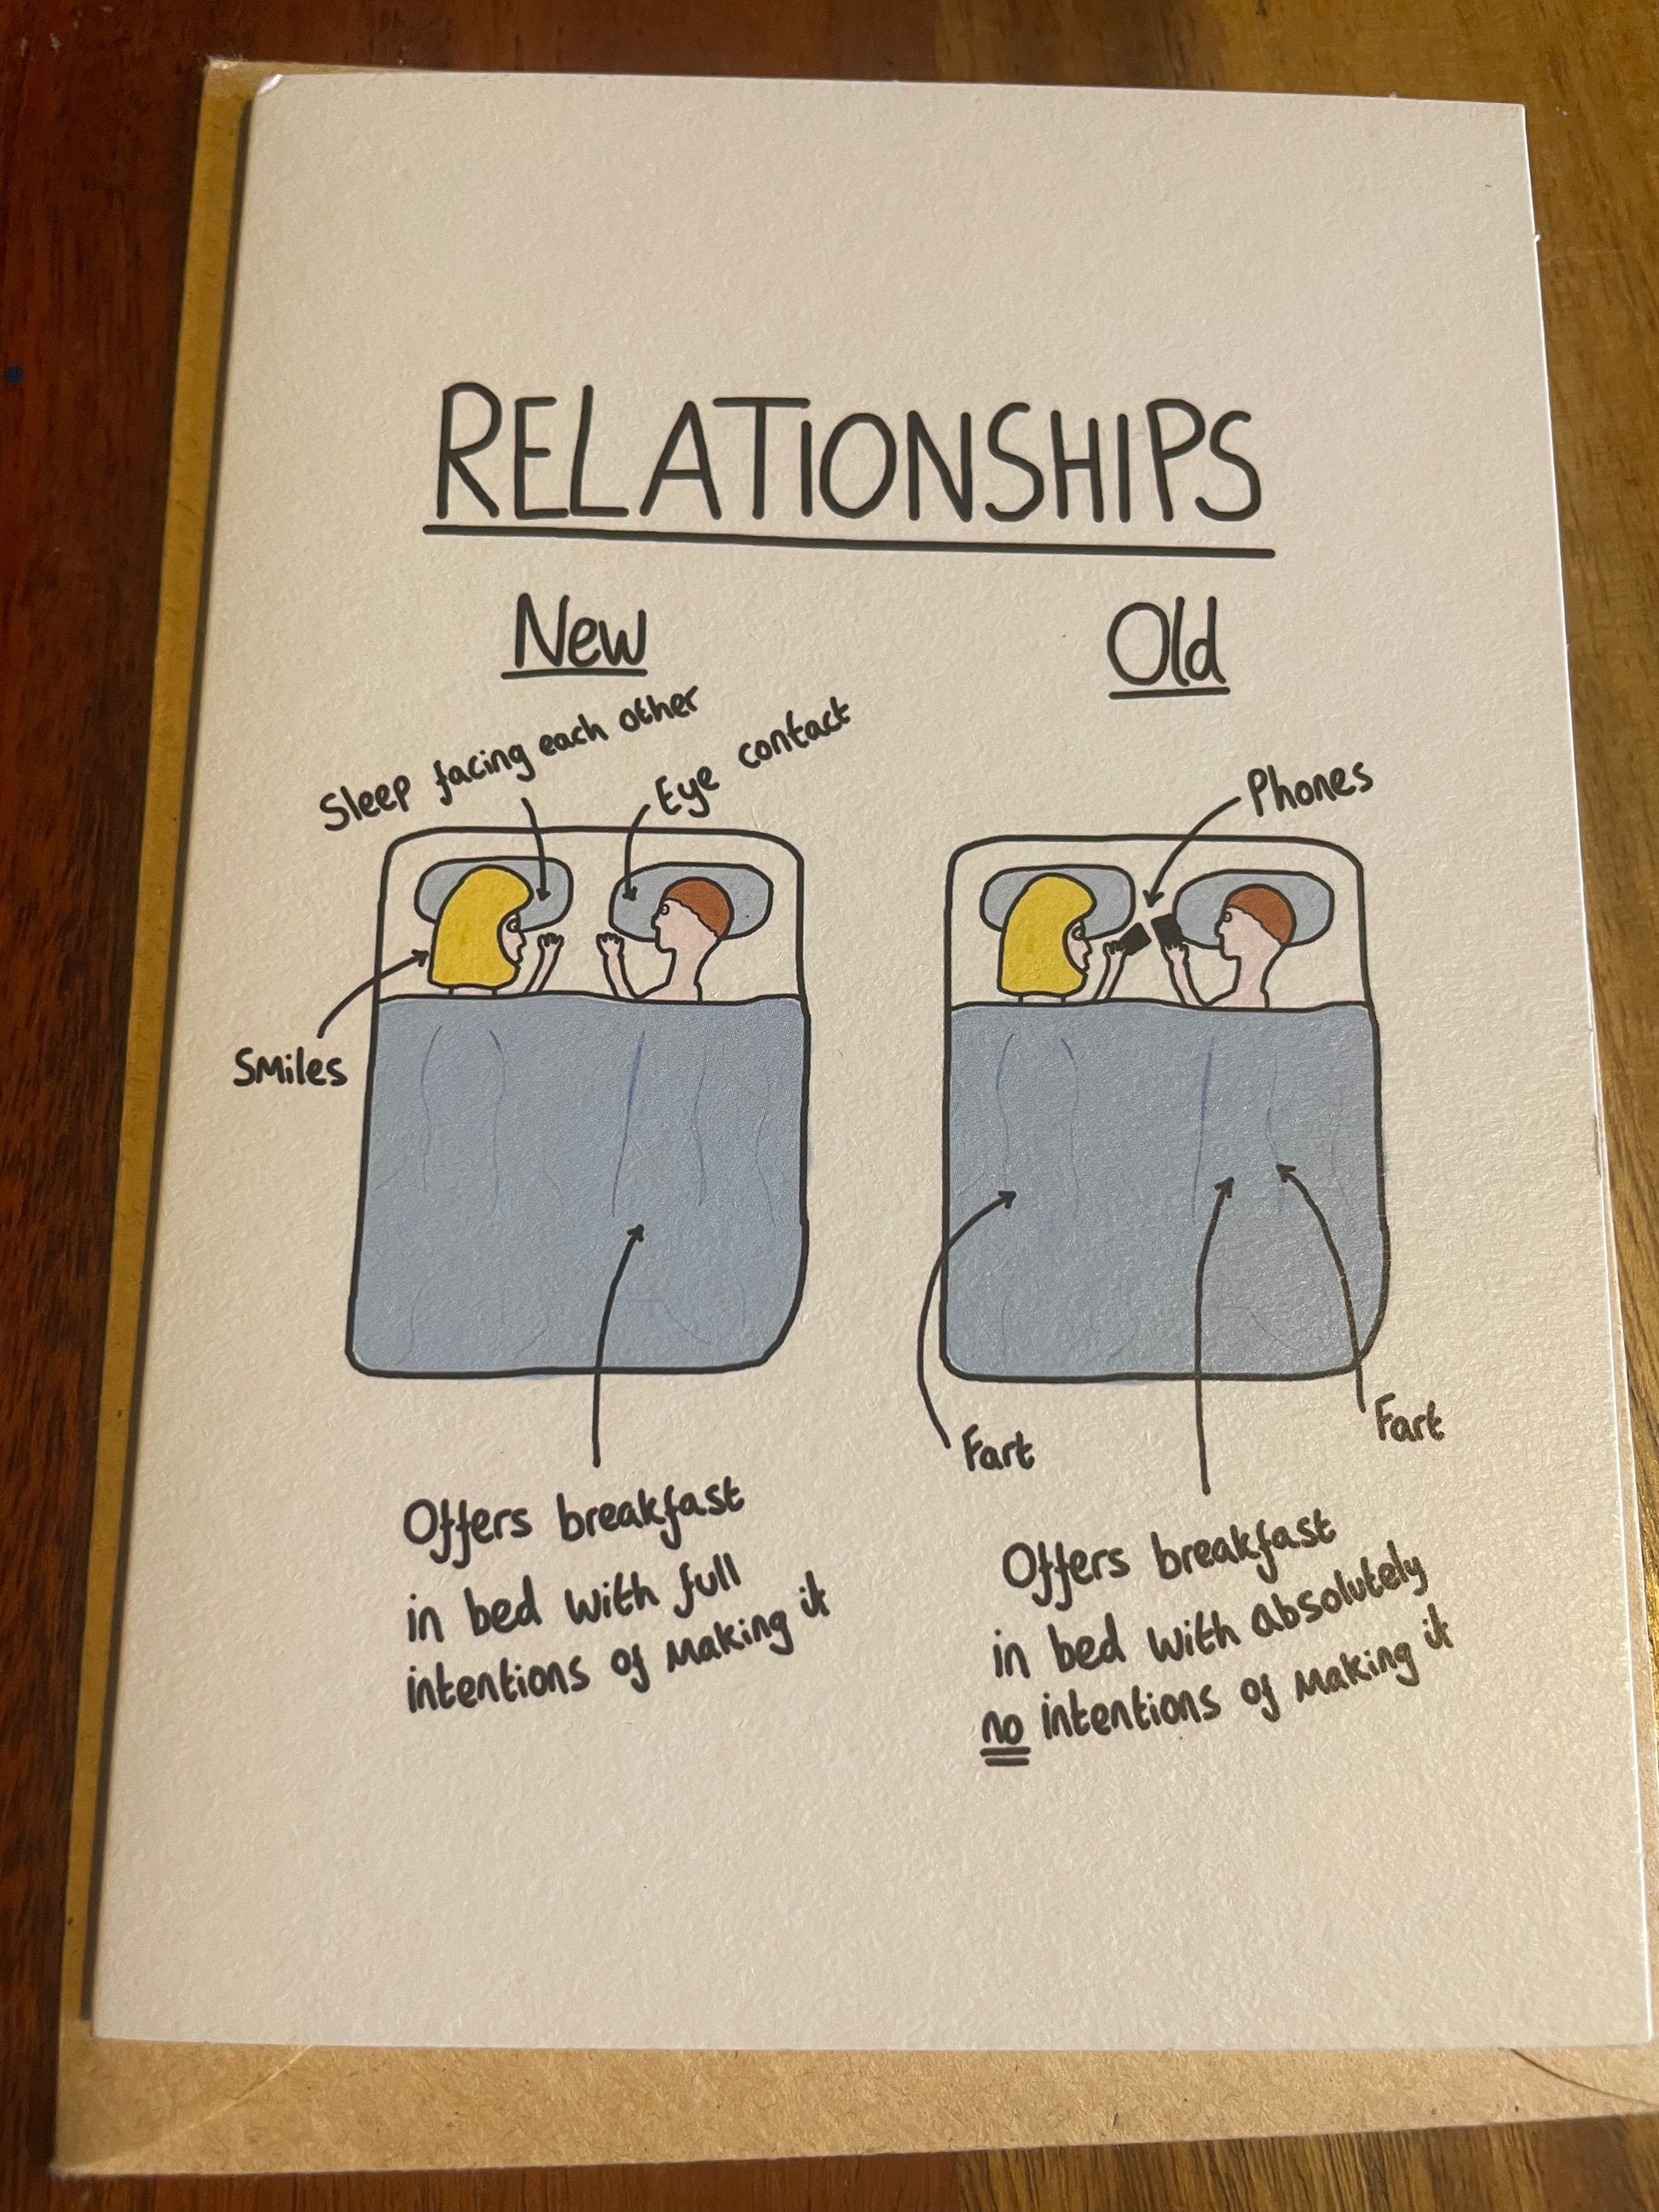 RELATIONSHIPS
New
Sleep facing each other
Eye contact
Smiles
Offers breakfast
in bed with full
intentions of making it
Old
Phones
Fart
Fart
Offers breakfast
in bed with absolutely
no intentions of making it